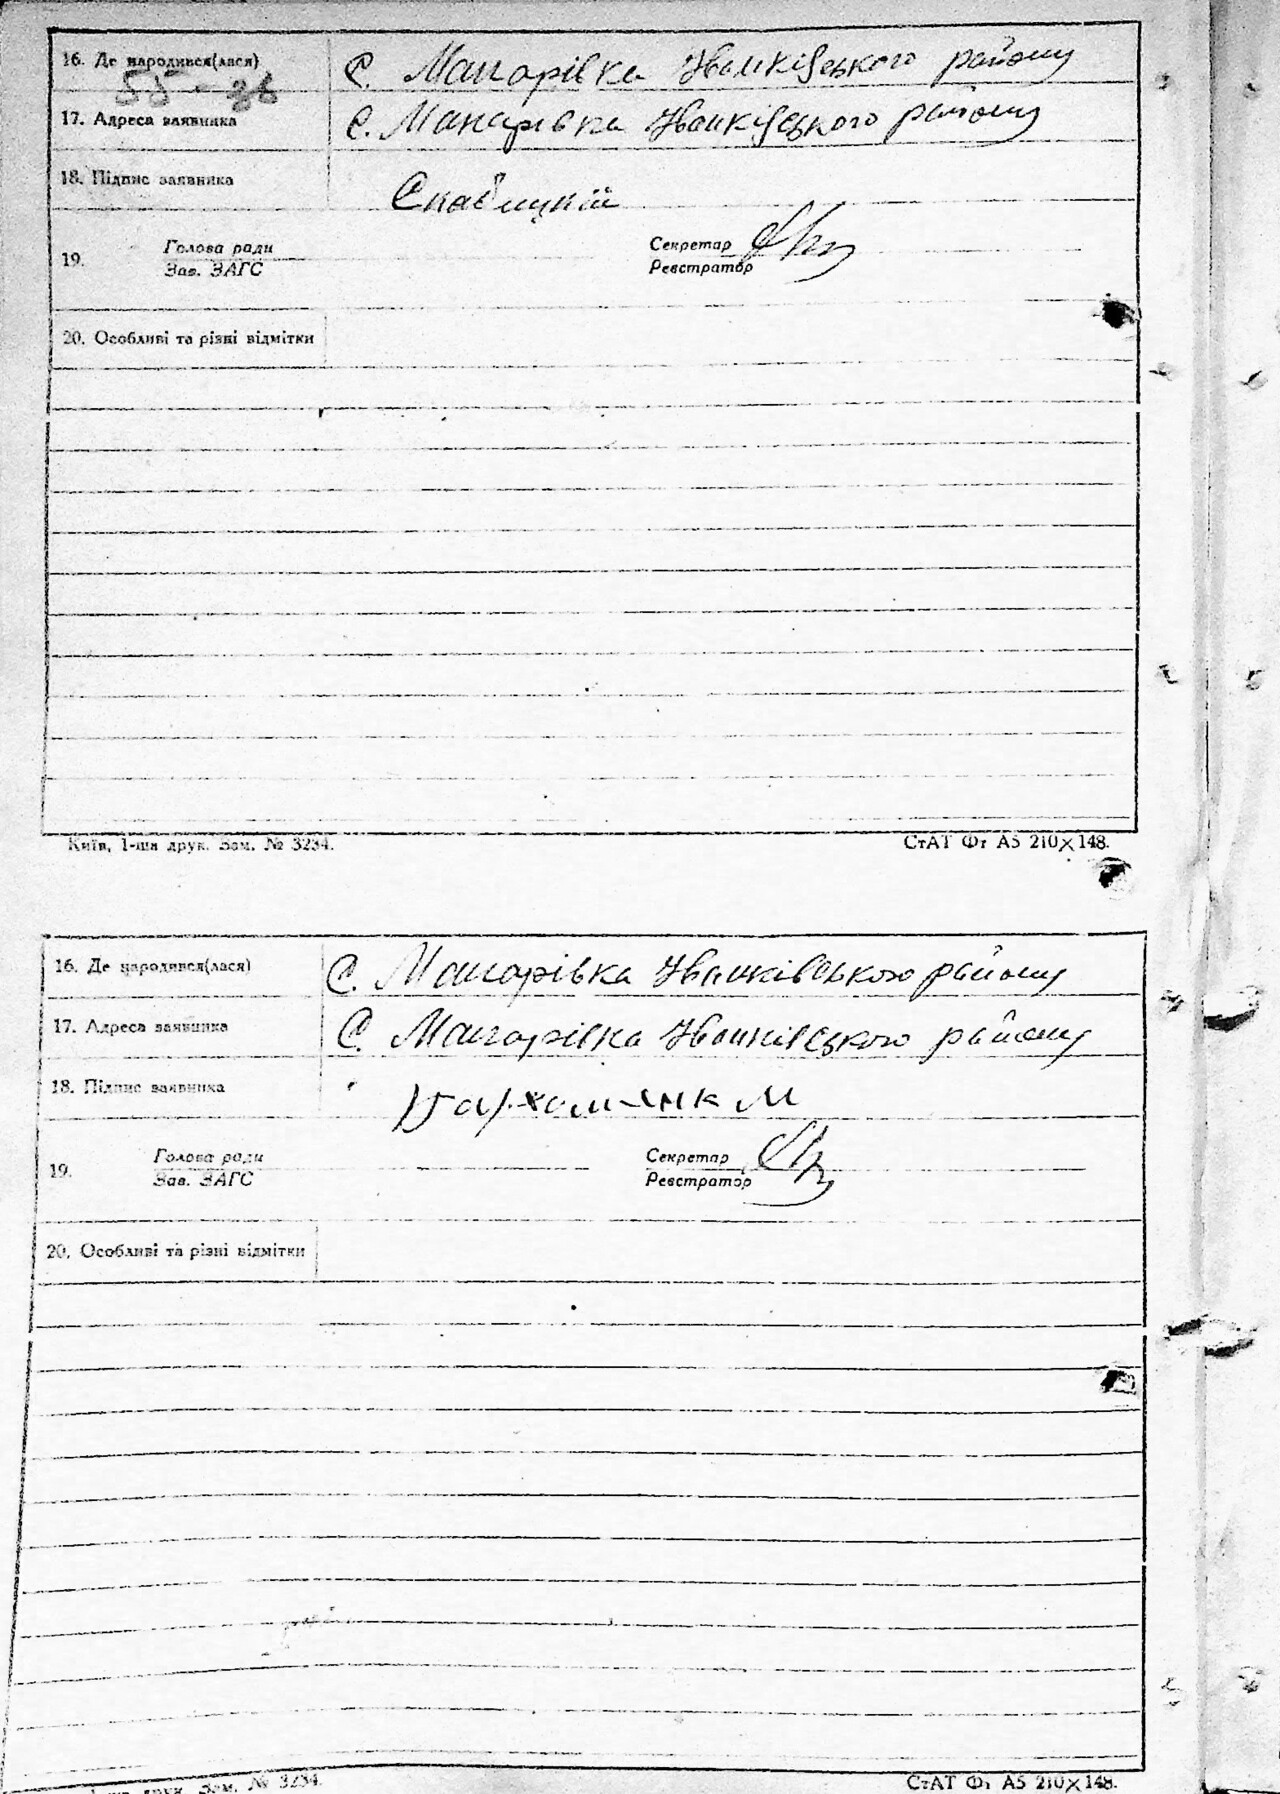 16. Де народився(лася) С. Макарівка Іванківського району
55 - 86
17. Адреса заявника С. Макарівка Іванківського району
18. Підпис заявника Скабицкій
19. Голова ради Секретар
Зав. ЗАГС Реєстратор
20. Особливі та різні відмітки
Київ, 1-ша друк. Зам. № 3234. СтАТ Фт А5 210×148.
16. Де народився(лася) С. Макарівка Іванківського району
17. Адреса заявника С. Макарівка Іванківського району
18. Підпис заявника
19. Голова ради Секретар
Зав. ЗАГС Реєстратор
20. Особливі та різні відмітки
друк. Зам. № 3234. СтАТ Фт А5 210×148.